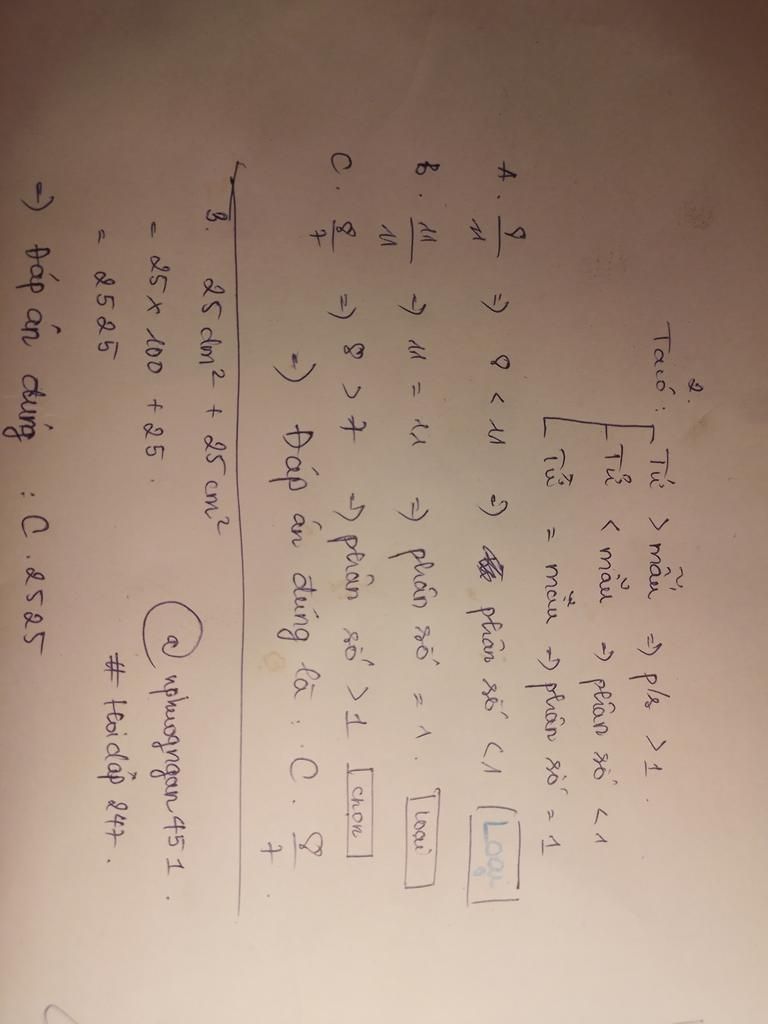 2.
Ta có : Tử > mẫu => p/s > 1.
Tử < mẫu => phân số < 1
Tử = mẫu => phân số = 1
A. 8/11 => 8 < 11 => phân số < 1 Loại
B. 11/11 => 11 = 11 => phân số = 1. Loại
C. 8/7 => 8 > 7 => phân số > 1 chọn
=> Đáp án đúng là : C. 8/7.
3. 25 dm² + 25 cm²
= 25 x 100 + 25.
= 2525
@ nphuogngan451.
# Hoidap247.
=> Đáp án đúng : C. 2525